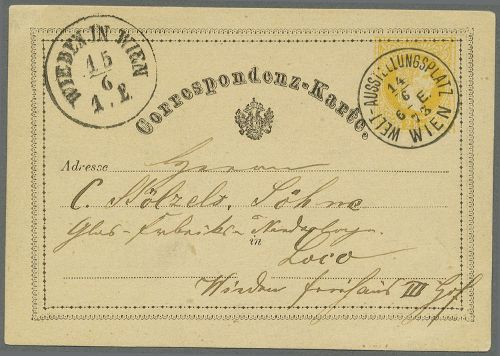 WIEDEN IN WIEN
15
6
1.E.
WELT-AUSSTELLUNGSPLATZ
14
6
6-E
73
WIEN
Correspondenz-Karte.
Adresse Herren
C. Stölzels Söhne
Glas-Fabriks-Niederlagen
in
Loco
Wieden Freihaus III Hof